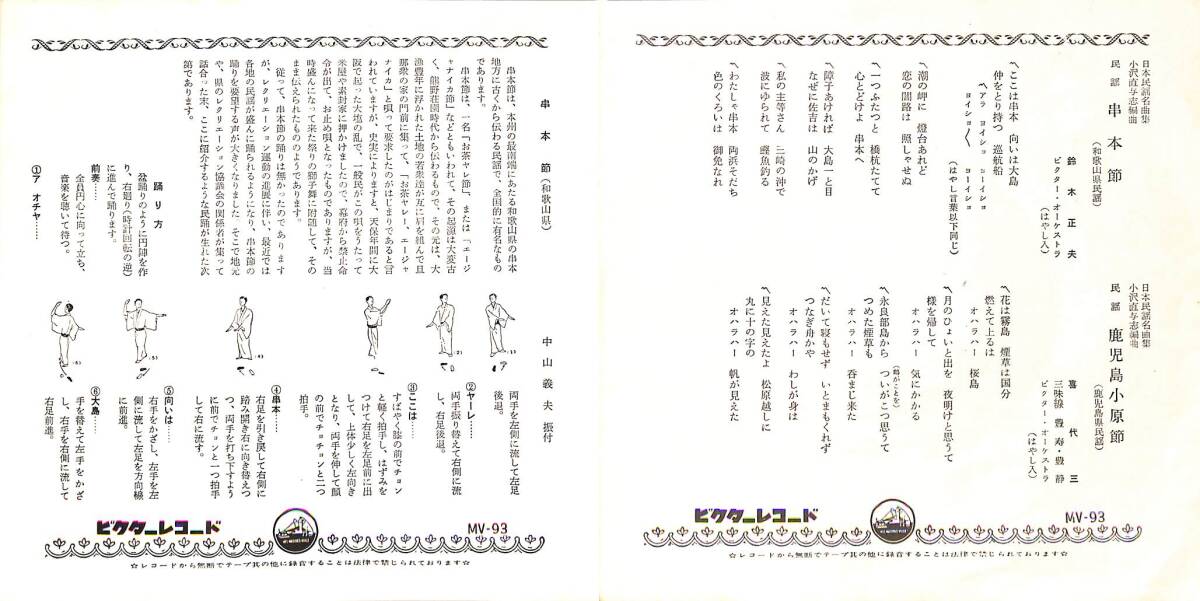 日本民謡名曲集
小沢直与志編曲
民謡 串本節 (和歌山県民謡)
鈴木正夫
ビクター・オーケストラ
(はやし入)
〽ここは串本 向いは大島
仲をとり持つ 巡航船
〽アラ ヨイショ ヨーイショ
ヨイショ〱 ヨーイショ
(はやし言葉以下同じ)
〽潮の岬に 燈台あれど
恋の闇路は 照しゃせぬ
〽一つふたつと 橋杭たてて
心とどけよ 串本へ
〽障子あければ 大島一と目
なぜに佐吉は 山のかげ
〽私の主等さん 三崎の沖で
波にゆられて 鰹魚釣る
〽わたしゃ串本 両浜そだち
色のくろいは 御免なれ
日本民謡名曲集
小沢直与志編曲
民謡 鹿児島小原節 (鹿児島県民謡)
喜代三
三味線 豊寿・豊静
ビクター・オーケストラ
(はやし入)
〽花は霧島 煙草は国分
燃えて上るは
オハラハー 桜島
〽月のひょいと出を 夜明けと思うて
様を帰して
オハラハー 気にかかる
〽永良部島から ついがこつ思うて
(島がことを)
つめた煙草も
オハラハー 呑まじ来た
〽だいて寝もせず いとまもくれず
つなぎ舟かや
オハラハー わしが身は
〽見えた見えたよ 松原越しに
丸に十の字の
オハラハー 帆が見えた
ビクターレコード
MV-93
☆レコードから無断でテープ其の他に録音することは法律で禁じられております☆
串本節 (和歌山県)
中山義夫 振付
串本節は、本州の最南端にあたる和歌山県の串本
地方に古くから伝わる民謡で、全国的に有名なもの
であります。
串本節は、一名「お茶ヤレ節」、または「エージ
ャナイカ節」などともいわれて、その起源は大変古
く、熊野荘園時代から伝わるもので、その元は、大
漁豊年に浮かれた土地の若衆達が互に肩を組んで旦
那衆の家の門前に集って、「お茶ヤレー、エージャ
ナイカ」と唄って要求したのがはじまりであると言
われていますが、史実によりますと、天保年間に大
阪で起った大塩の乱で、一般民がこの唄をうたって
米屋や素封家に押かけましたので、幕府から禁止命
令が出て、お止め唄となったものでありますが、当
時盛んになって来た祭りの獅子舞に附随して、その
まま伝えられたもののようであります。
従って、串本節の踊りは無かったのであります
が、レクリエーション運動の進展に伴い、最近では
各地の民謡が盛んに踊られるようになり、串本節の
踊りを要望する声が大きくなりました。そこで地元
や、県のレクリエーション協議会の関係者が集って
話合った末、ここに紹介するような民踊が生れた次
第であります。
踊り方
盆踊りのように円陣を作
り、右廻り(時計回転の逆)
に進んで踊ります。
前奏……
全員円心に向って立ち、
音楽を聴いて待つ。
①ア オチャ……
両手を左側に流して左足
後退。
②ヤーレ……
両手振り替えて右側に流
し、右足後退。
③ここは……
すばやく膝の前でチョン
と軽く拍手し、はずみを
つけて右足を左足前に出
して、上体少しく左向き
となり、両手を伸して顔
の前でチョチョンと二つ
拍手。
④串本……
右足を引き戻して右側に
踏み開き右に向き替えつ
つ、両手を打ち下すよう
に前でチョンと一つ拍手
して右に流す。
⑤向いは……
右手をかざし、左手を左
側に流して左足を方向線
に前進。
⑥大島……
手を替えて左手をかざ
し、右手を右側に流して
右足前進。
(1)
(2)
(3)
(4)
(5)
(6)
ビクターレコード
MV-93
☆レコードから無断でテープ其の他に録音することは法律で禁じられております☆